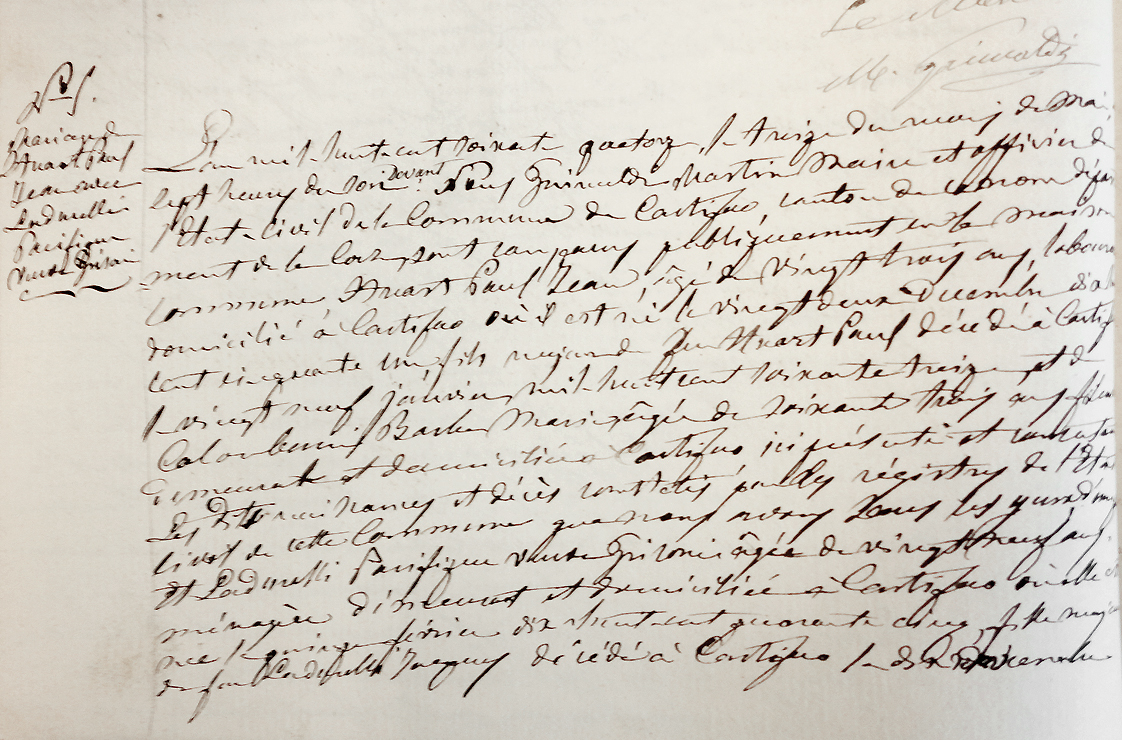 Le Maire
M. Grimaldi
N° 5.
Mariage
Huart Paul
Jean avec
Ladurelli
Pacifique
veuve Grisoni
L'an mil huit cent soixante quatorze, le treize du mois de Mai
sept heures du soir devant Nous Grimaldi Martin Maire et officier de
l'Etat-Civil de la Commune de Castifao, canton de ce nom dépar
tement de la Corse, sont comparus publiquement en la maison
commune Huart Paul Jean, âgé de vingt trois ans, laboureur
domicilié à Castifao où il est né le vingt deux Décembre dix huit
cent cinquante un, fils majeur de feu Huart Paul décédé à Castifao
le vingt neuf janvier mil huit cent soixante treize et de
Colombani Barbe Marie âgée de soixante trois ans
demeurant et domiciliée à Castifao ici présente et consentante
Les dites naissances et décès constatés par les régistres de l'Etat
civil de cette Commune que nous avons sous les yeux d'une
Et Ladurelli Pacifique veuve Grisoni âgée de vingt neuf ans,
ménagère demeurant et domiciliée à Castifao où elle est
née le quinze février dix huit cent quarante cinq, fille majeure
de feu Ladurelli Jacques décédé à Castifao le dix Décembre